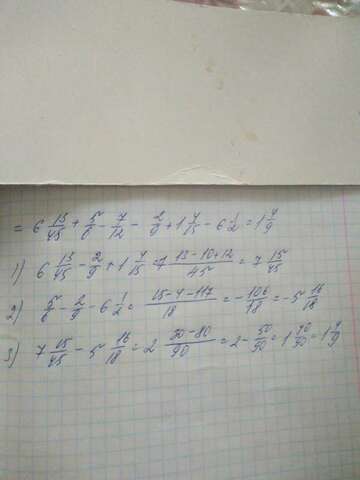 = 6 13/45 + 5/6 - 7/12 - 2/9 + 1 4/15 - 6 1/2 = 1 4/9
1) 6 13/45 - 2/9 + 1 4/15 = 7 13-10+12/45 = 7 15/45
2) 5/6 - 2/9 - 6 1/2 = 15-4-117/18 = - 106/18 = -5 16/18
3) 7 15/45 - 5 16/18 = 2 30-80/90 = 2 - 50/90 = 1 40/90 = 1 4/9